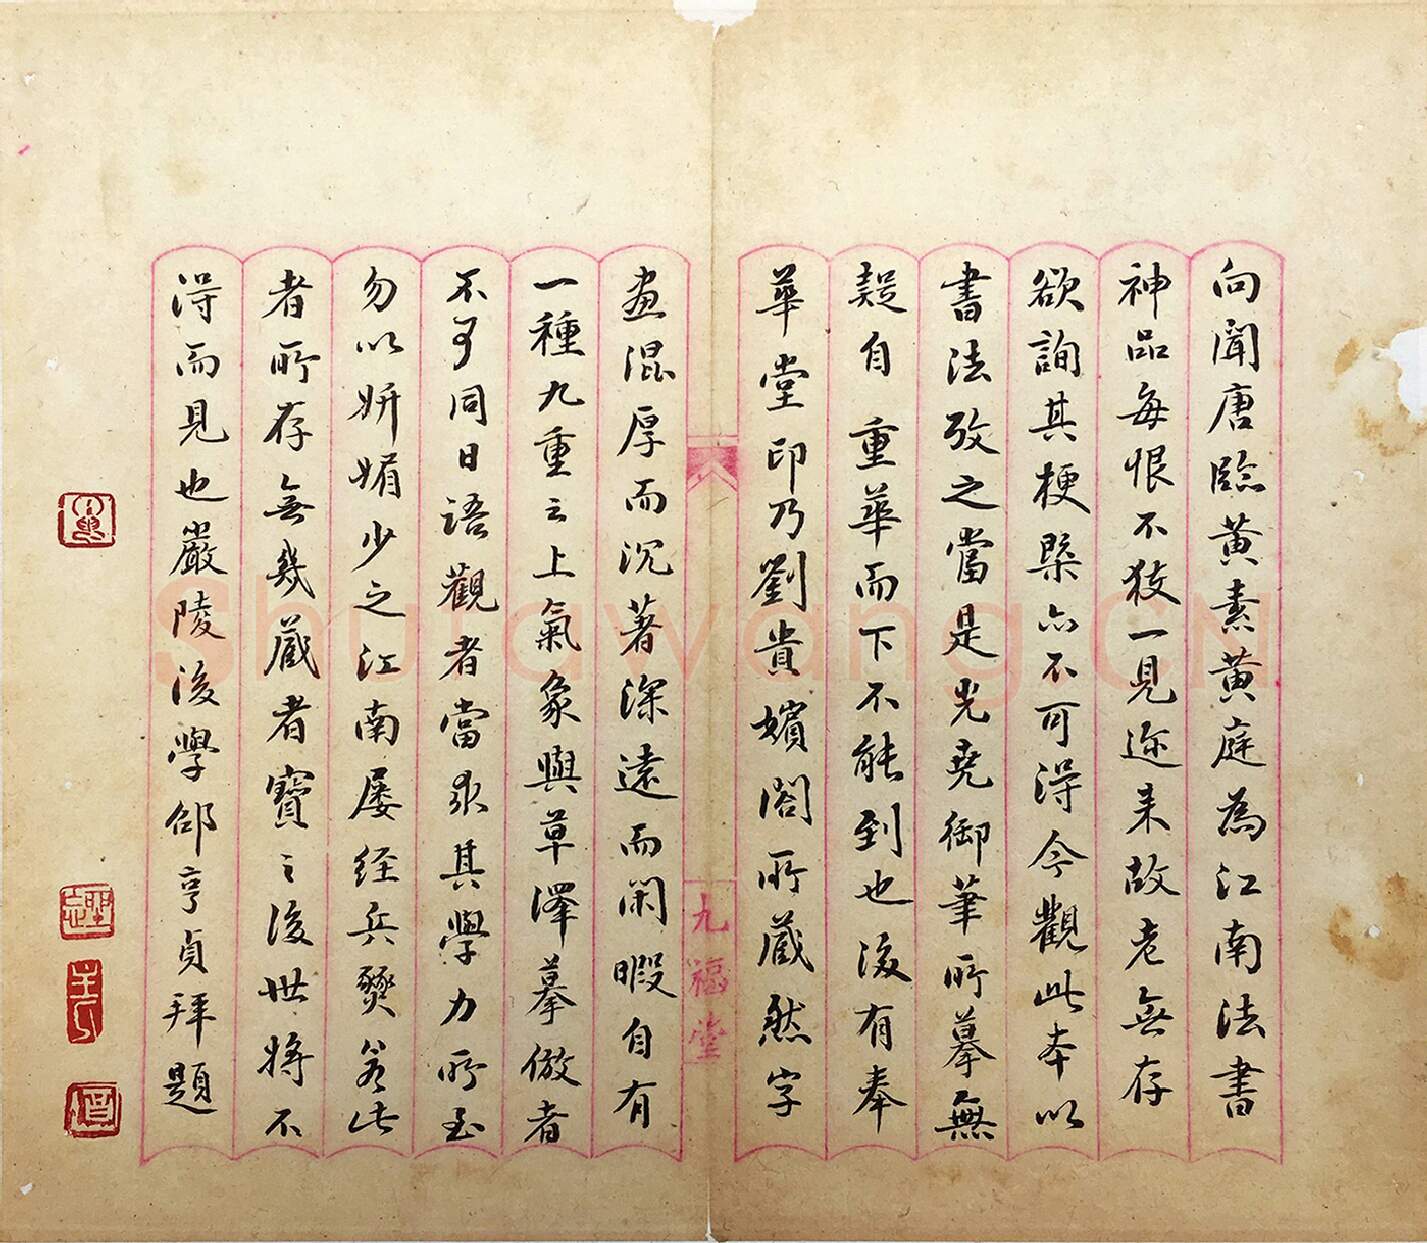 向聞唐臨黃素黃庭為江南法書
神品每恨不獲一見迩来故老無存
欲詢其梗槩亦不可得今觀此本以
書法攷之當是光堯御筆所摹無
疑自重華而下不能到也後有奉
華堂印乃劉貴嬪閣所藏然字
畫混厚而沉著深遠而閑暇自有
一種九重之上氣象與草澤摹倣者
不可同日語觀者當求其學力所至
勿以妍媚少之江南屡经兵燹若此
者所存無幾藏者寶之後世将不
得而見也嚴陵後學邵亨貞拜題
九福堂
Shufawang.CN